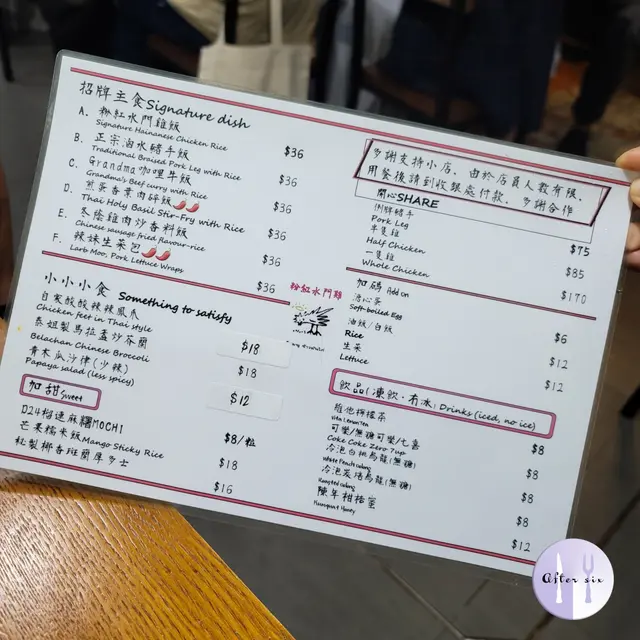 招牌主食 Signature dish
A. 粉紅水門雞飯 $36
Signature Hainanese Chicken Rice
B. 正宗滷水豬手飯 $36
Traditional Braised Pork Leg with Rice
C. Grandma 咖喱牛飯 $36
Grandma's Beef curry with Rice
D. 煎蛋香葉肉碎飯 $36
Thai Holy Basil Stir-Fry with Rice
E. 冬蔭雞肉炒香料飯 $36
Chinese sausage fried flavour-rice
F. 辣妹生菜包 $36
Larb Moo, Pork Lettuce Wraps
小小小食 Something to satisfy
自家酸酸辣辣鳳爪 $18
Chicken feet in Thai style
泰姐製馬拉盞炒芥蘭 $18
Belachan Chinese Broccoli
青木瓜沙律(少辣) $12
Papaya salad (less spicy)
加甜 Sweet
D24榴連麻糬MOCHI $8/粒
芒果糯米飯 Mango Sticky Rice $18
秘製椰香班蘭厚多士 $16
粉紅水門雞
多謝支持小店、由於店員人數有限、
用餐後請到收銀處付款、多謝合作
開心SHARE
例牌豬手 $75
Pork Leg
半隻雞 $85
Half Chicken
一隻雞 $170
Whole Chicken
加碼 Add on
溏心蛋 $6
Soft-boiled Egg
油飯/白飯 $12
Rice
生菜 $12
Lettuce
飲品(凍飲·冇冰) Drinks (iced, no ice)
維他檸檬茶 $8
Vita Lemon Tea
可樂/無糖可樂/七喜 $8
Coke Coke Zero 7up
冷泡白桃烏龍(無糖) $8
冷泡炭焙烏龍(無糖) $8
陳年柑桔蜜 $12
After six